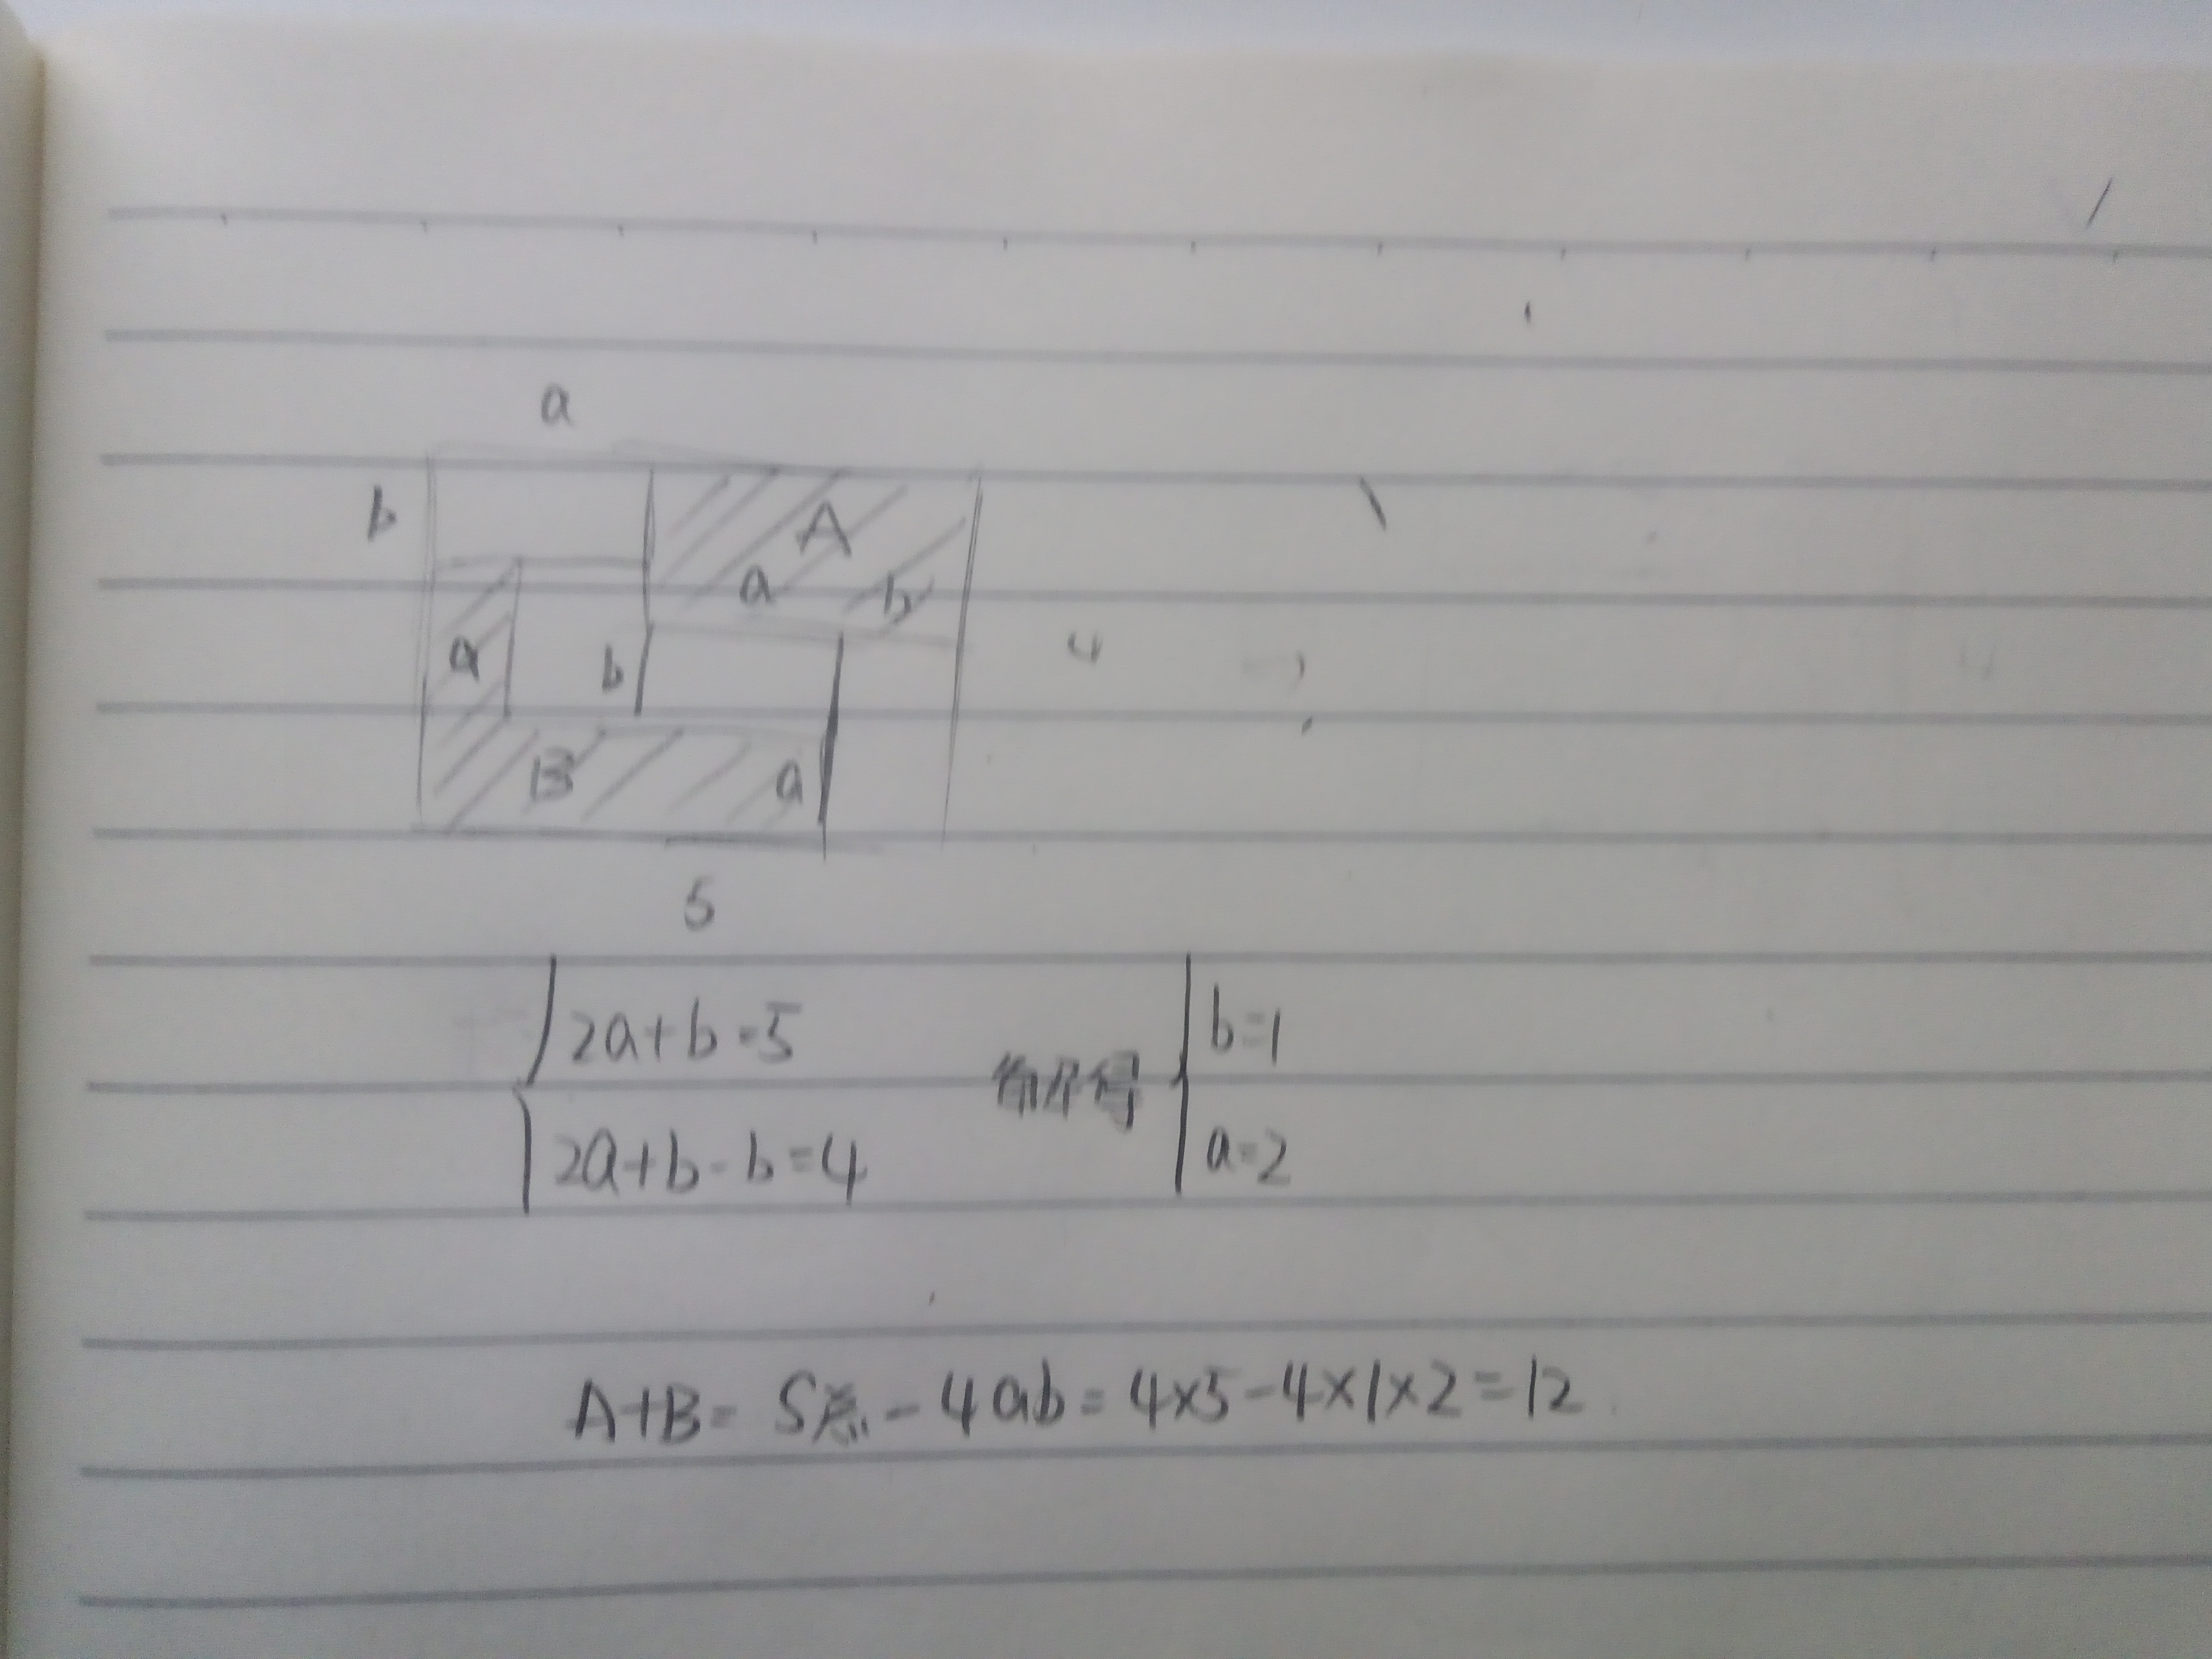 a
b
A
a b
a
b
4
B
a
5
2a+b=5
解得
b=1
2a+b-b=4
a=2
A+B=S总-4ab=4×5-4×1×2=12